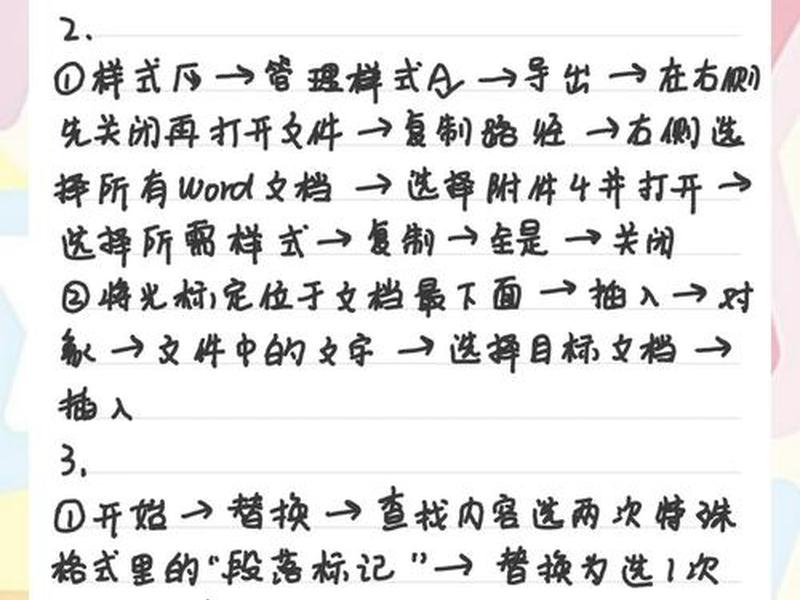 2.
①样式↘→管理样式A→导出→在右侧
先关闭再打开文件→复制路径→右侧选
择所有Word文档→选择附件4并打开→
选择所需样式→复制→全是→关闭
②将光标定位于文档最下面→插入→对
象→文件中的文字→选择目标文档→
插入
3.
①开始→替换→查找内容选两次特殊
格式里的“段落标记”→替换为选1次